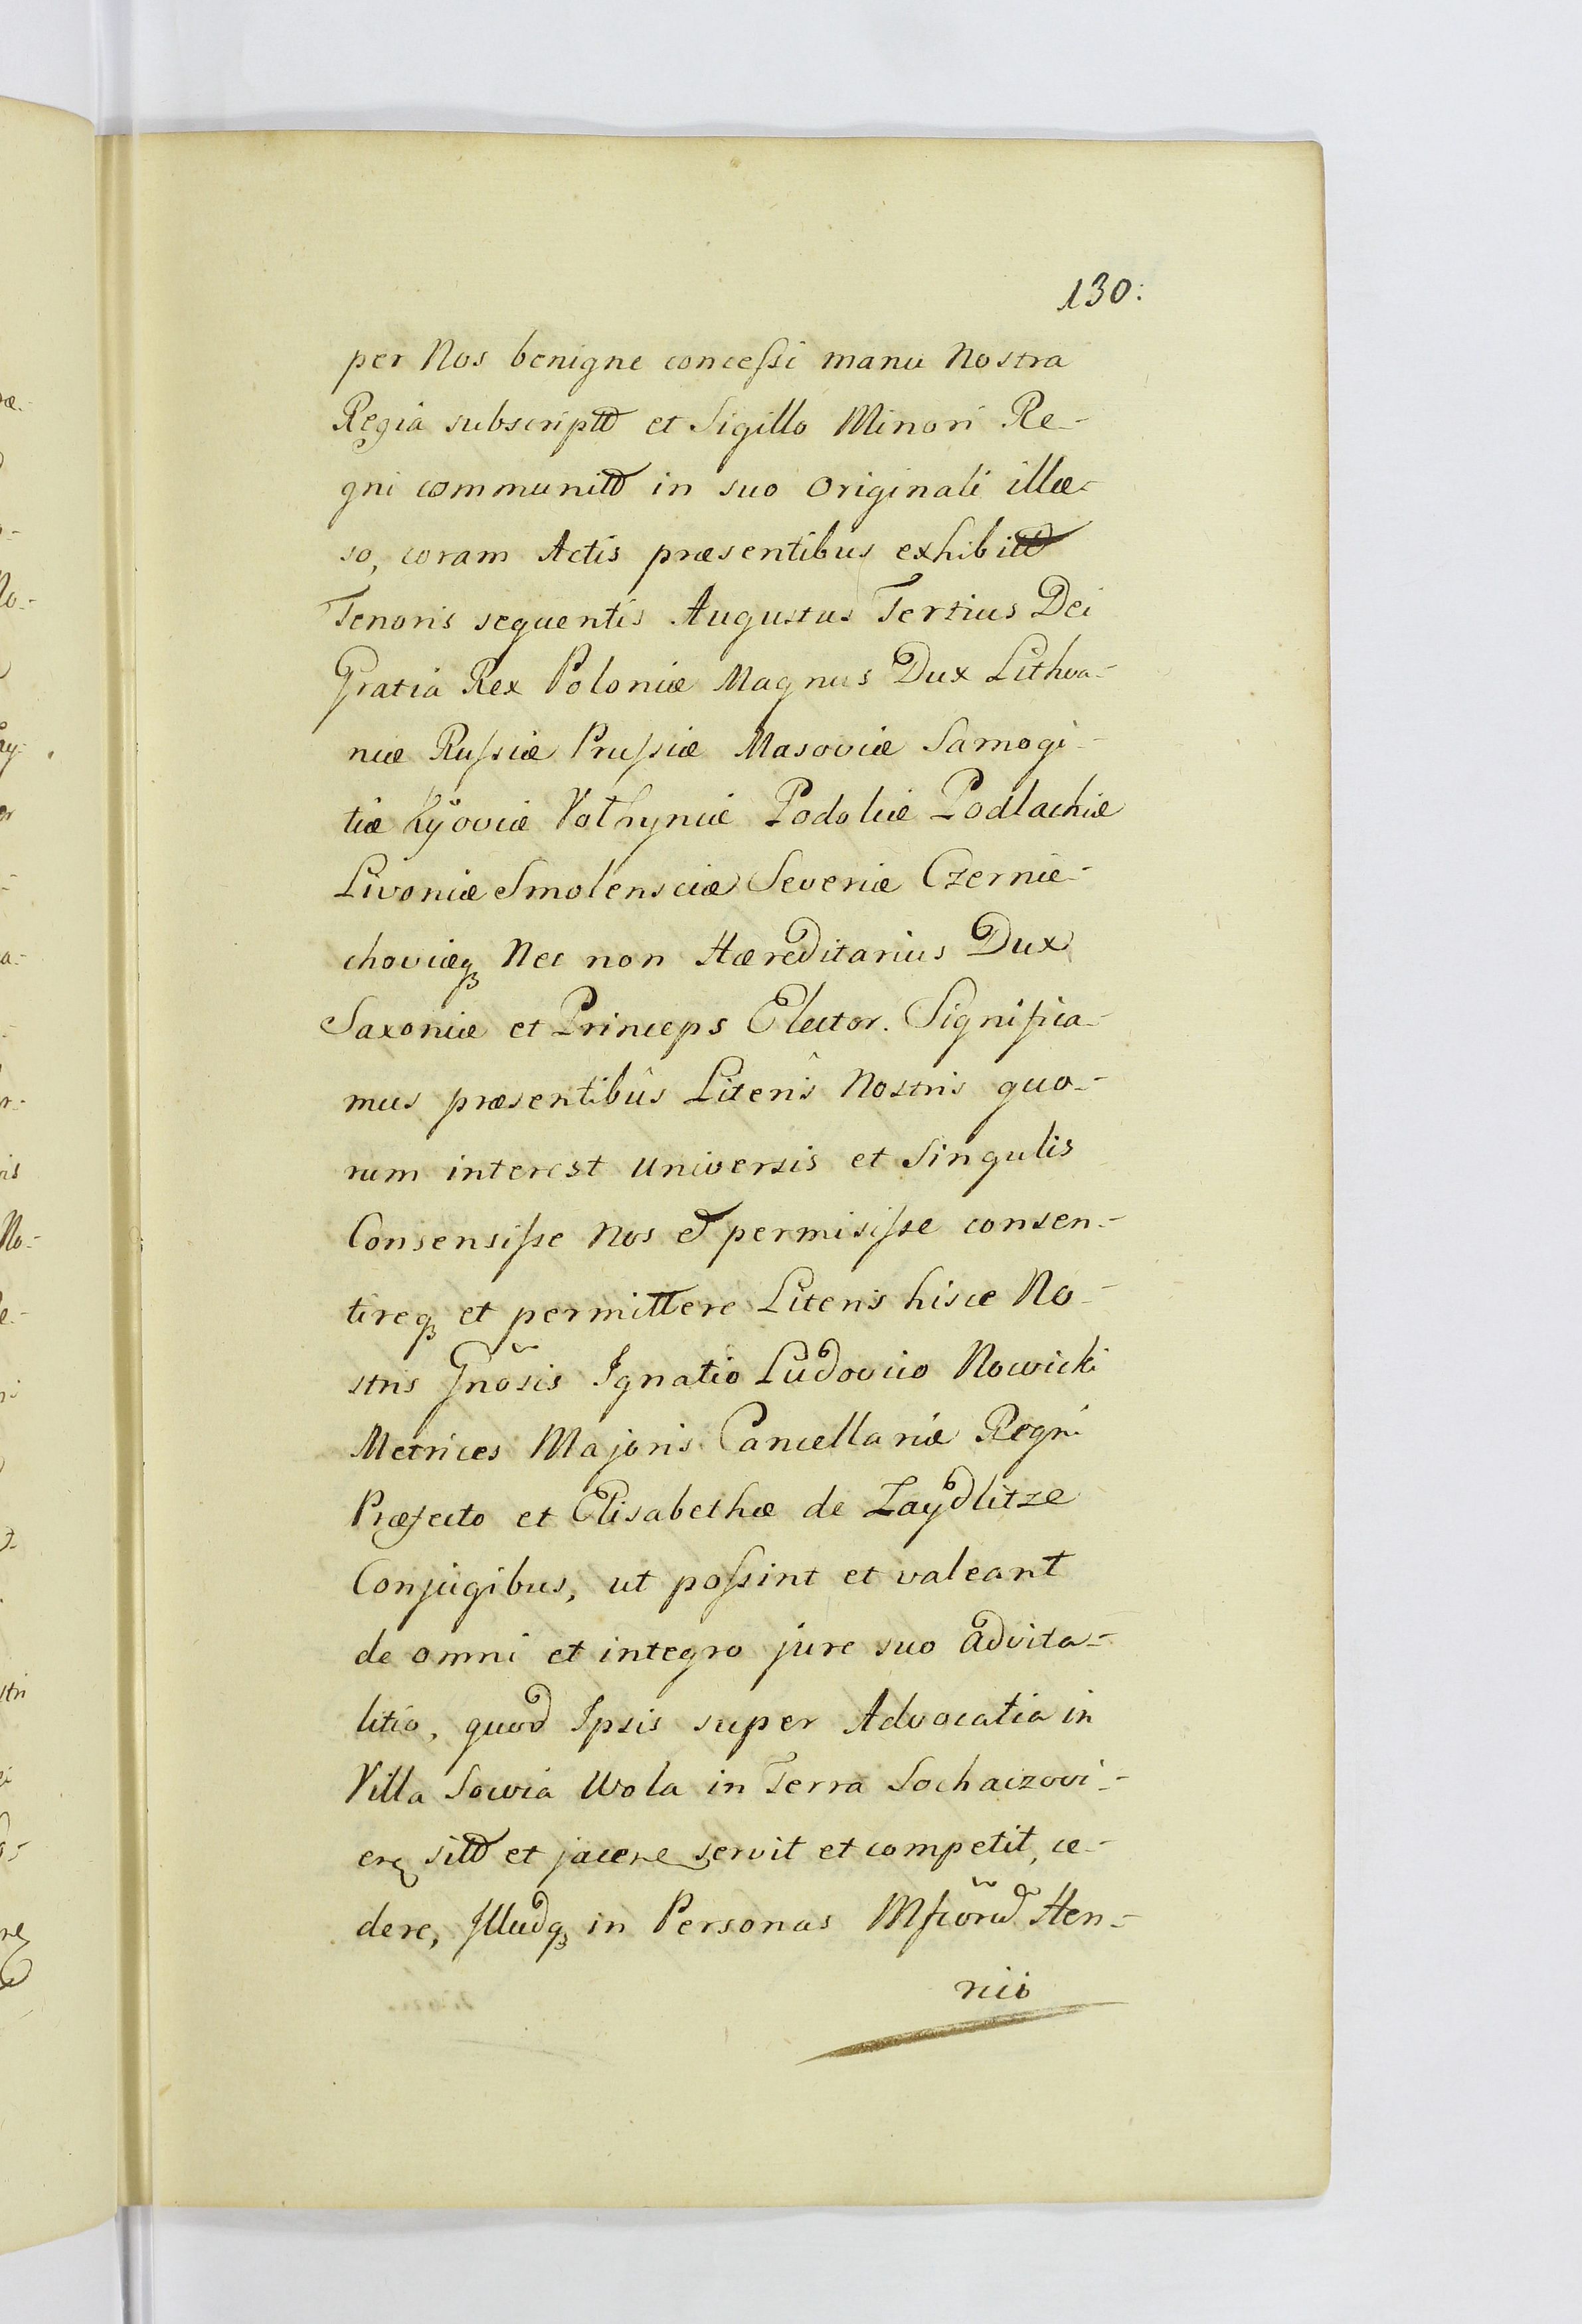 130:
per Nos benigne concessi manu Nostra
Regia subscript et Sigillo Minori Re-
gni communit in suo Originali illæ-
so, coram Actis præsentibus exhibit
Tenoris sequentis Augustus Tertius Dei
Gratia Rex Poloniæ Magnus Dux Lithva-
niæ Russiæ Prussiæ Masoviæ Samogi-
tiæ Kÿoviæ Volhyniæ Podoliæ Podlachiæ
Livoniæ Smolensciæ Severiæ Czernie-
choviæq Nec non Hæreditarius Dux
Saxoniæ et Princeps Elector. Significa-
mus præsentibûs Literîs Nostris quo-
rum interest Universis et Singulis
Consensisse Nos et permisisse consen-
tireq et permittere Literis hisce No-
stris Gnosis Ignatio Ludovico Nowicki
Metrices Majoris Cancellariæ Regni
Præfecto et Elisabethæ de Zaydlitze
Conjugibus, ut possint et valeant
de omni et integro jure suo advita-
litio, quod Ipsis super Advocatia in
Villa Sowia Wola in Terra Sochaczovi-
en sit et jacene servit et competit, ce-
dere, Illudq in Personas Mficorũ Hen-
rici